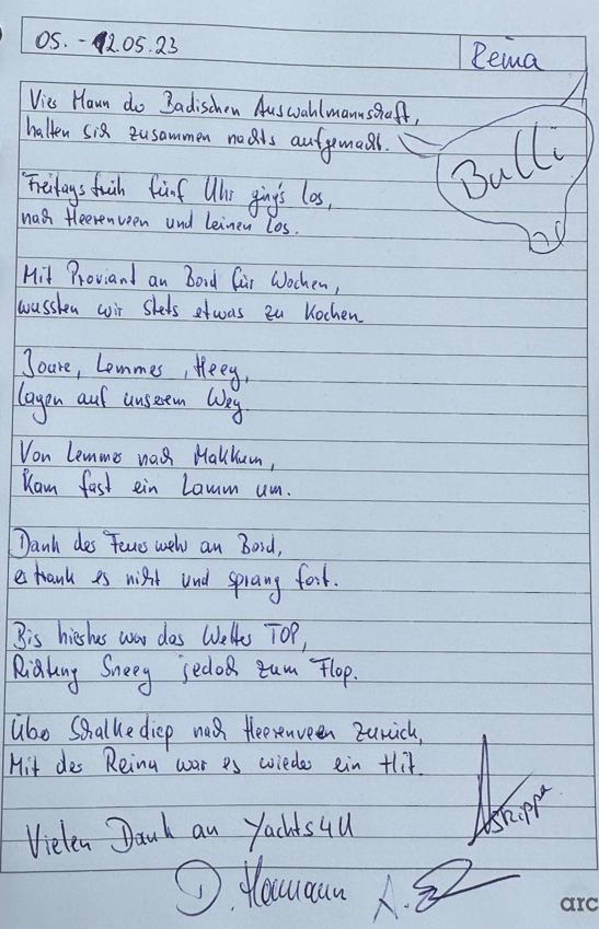 05. - 12.05.23
Reina
Vier Mann der Badischen Auswahlmannschaft,
halten sich zusammen nachts aufgemacht.
Bulli
Freitags früh fünf Uhr ging's los,
nach Heerenveen und Leinen los.
Mit Proviant an Bord für Wochen,
wussten wir stets etwas zu Kochen.
Joure, Lemmer, Heeg,
lagen auf unserem Weg.
Von Lemmer nach Makkum,
Kam fast ein Lamm um.
Dank der Feuerwehr an Bord,
ertrank es nicht und sprang fort.
Bis hierher war das Wetter TOP,
Richtung Sneeg jedoch zum Flop.
Über Schalkediep nach Heerenveen zurück,
Mit der Reina war es wieder ein Hit.
Skippa
Vielen Dank an Yachts4U
D. Hermann A.
arc